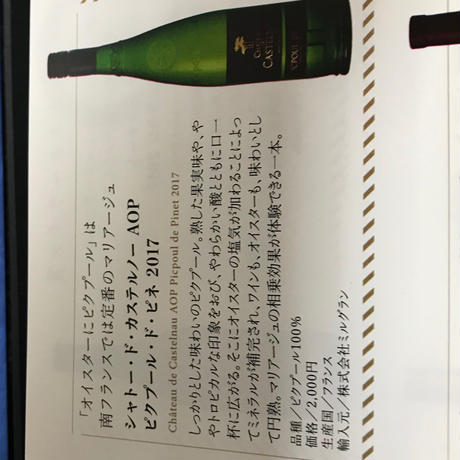 「オイスターにピクプール」は
南フランスでは定番のマリアージュ
シャトー・ド・カステルノー AOP
ピクプール・ド・ピネ 2017
Château de Castelnau AOP Picpoul de Pinet 2017
しっかりとした味わいのピクプール。熟した果実味や、や
やトロピカルな印象をおび、やわらかい酸とともに口一
杯に広がる。そこにオイスターの塩気が加わることによっ
てミネラルが補完され、ワインも、オイスターも、味わいとし
て円熟。マリアージュの相乗効果が体験できる一本。
品種／ピクプール100%
価格／2,000円
生産国／フランス
輸入元／株式会社ミルグラン